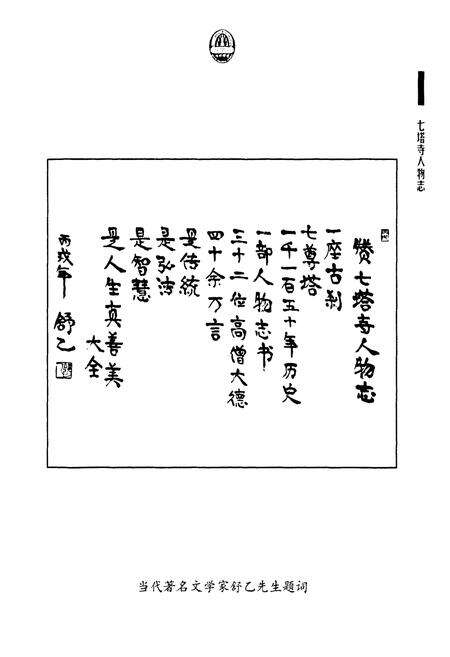 七塔寺人物志
赞七塔寺人物志
一座古刹
七尊塔
一千一百五十年历史
一部人物志书
三十二位高僧大德
四十余万言
是传统
是弘法
是智慧
是人生真善美
大全
丙戌年 舒乙
当代著名文学家舒乙先生题词